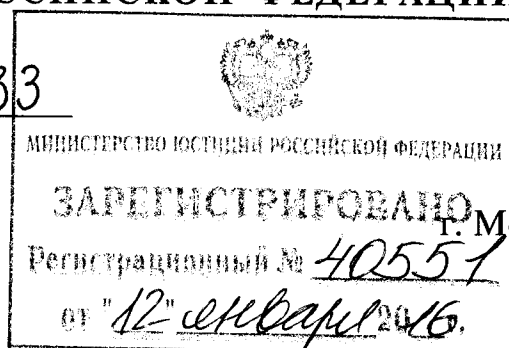 РОССИЙСКОЙ ФЕДЕРАЦИИ
33
МИНИСТЕРСТВО ЮСТИЦИИ РОССИЙСКОЙ ФЕДЕРАЦИИ
ЗАРЕГИСТРИРОВАНО
г. М
Регистрационный № 40551
от "12" января 2016.